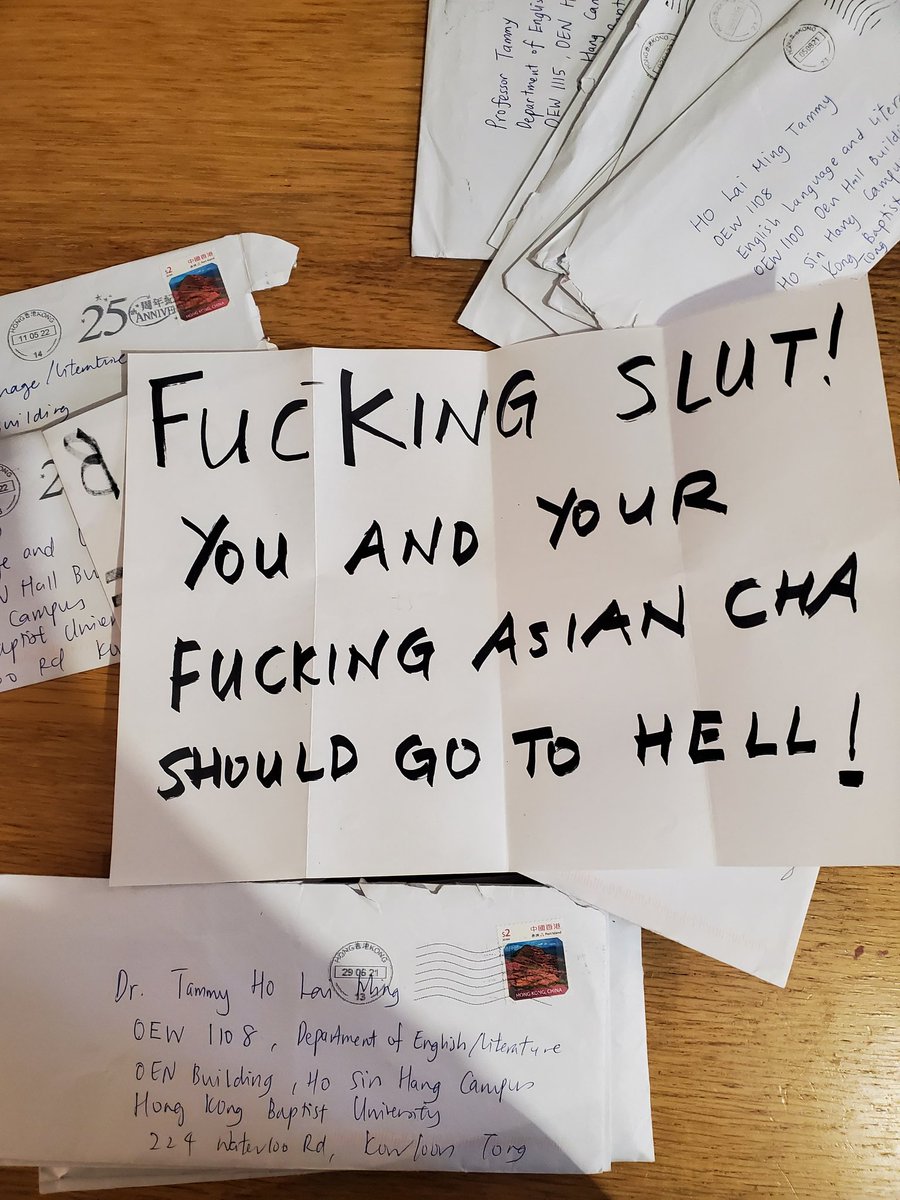 Professor Tammy
Department of English
OEW 1115, OEN H
Hang Can
HONG KONG
HO Lai Ming Tammy
OEW 1108
English Language and Litera
OEW 1100 Oen Hall Buildin
Ho Sin Hang Campus
Kong Baptist
Tong
中國香港
HONG KONG, CHINA
HONG KONG
11 05 22
14
25
周年紀
ANNIVE
uage/literature
uilding
2
ge and
Hall Bu
Campus
aptist Univer
Rd
FUCKING SLUT!
YOU AND YOUR
FUCKING ASIAN CHA
SHOULD GO TO HELL!
HONG KONG
29 06 21
13
$2
中國香港
HONG KONG, CHINA
Dr. Tammy Ho Lai Ming
OEW 1108, Department of English/literature
OEN Building, Ho Sin Hang Campus
Hong Kong Baptist University
224 Waterloo Rd, Kowloon Tong